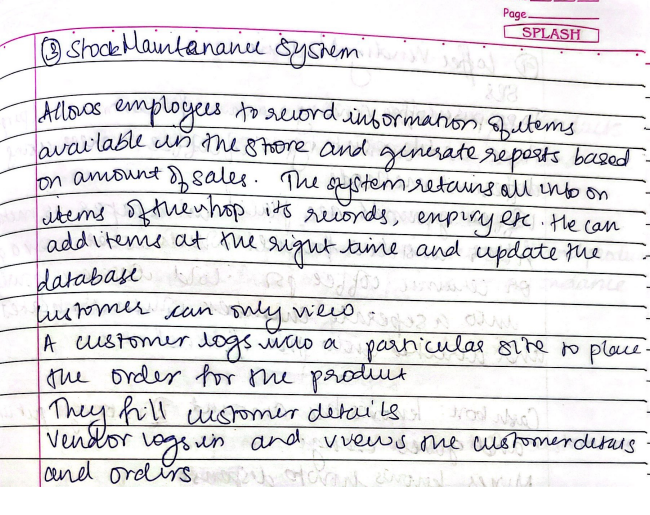 Page
SPLASH
③ Stock Maintanance System
Allows employees to record information of items
available in the stoore and generate reposts based
on amount of sales. The system retains all info on
items of the shop its records, expiry etc. He can
add items at the right time and update the
database
customer can only view.
A customer logs into a particular site to place
the order for the product
They fill customer details
Vendor logs in and views the customer details
and orders